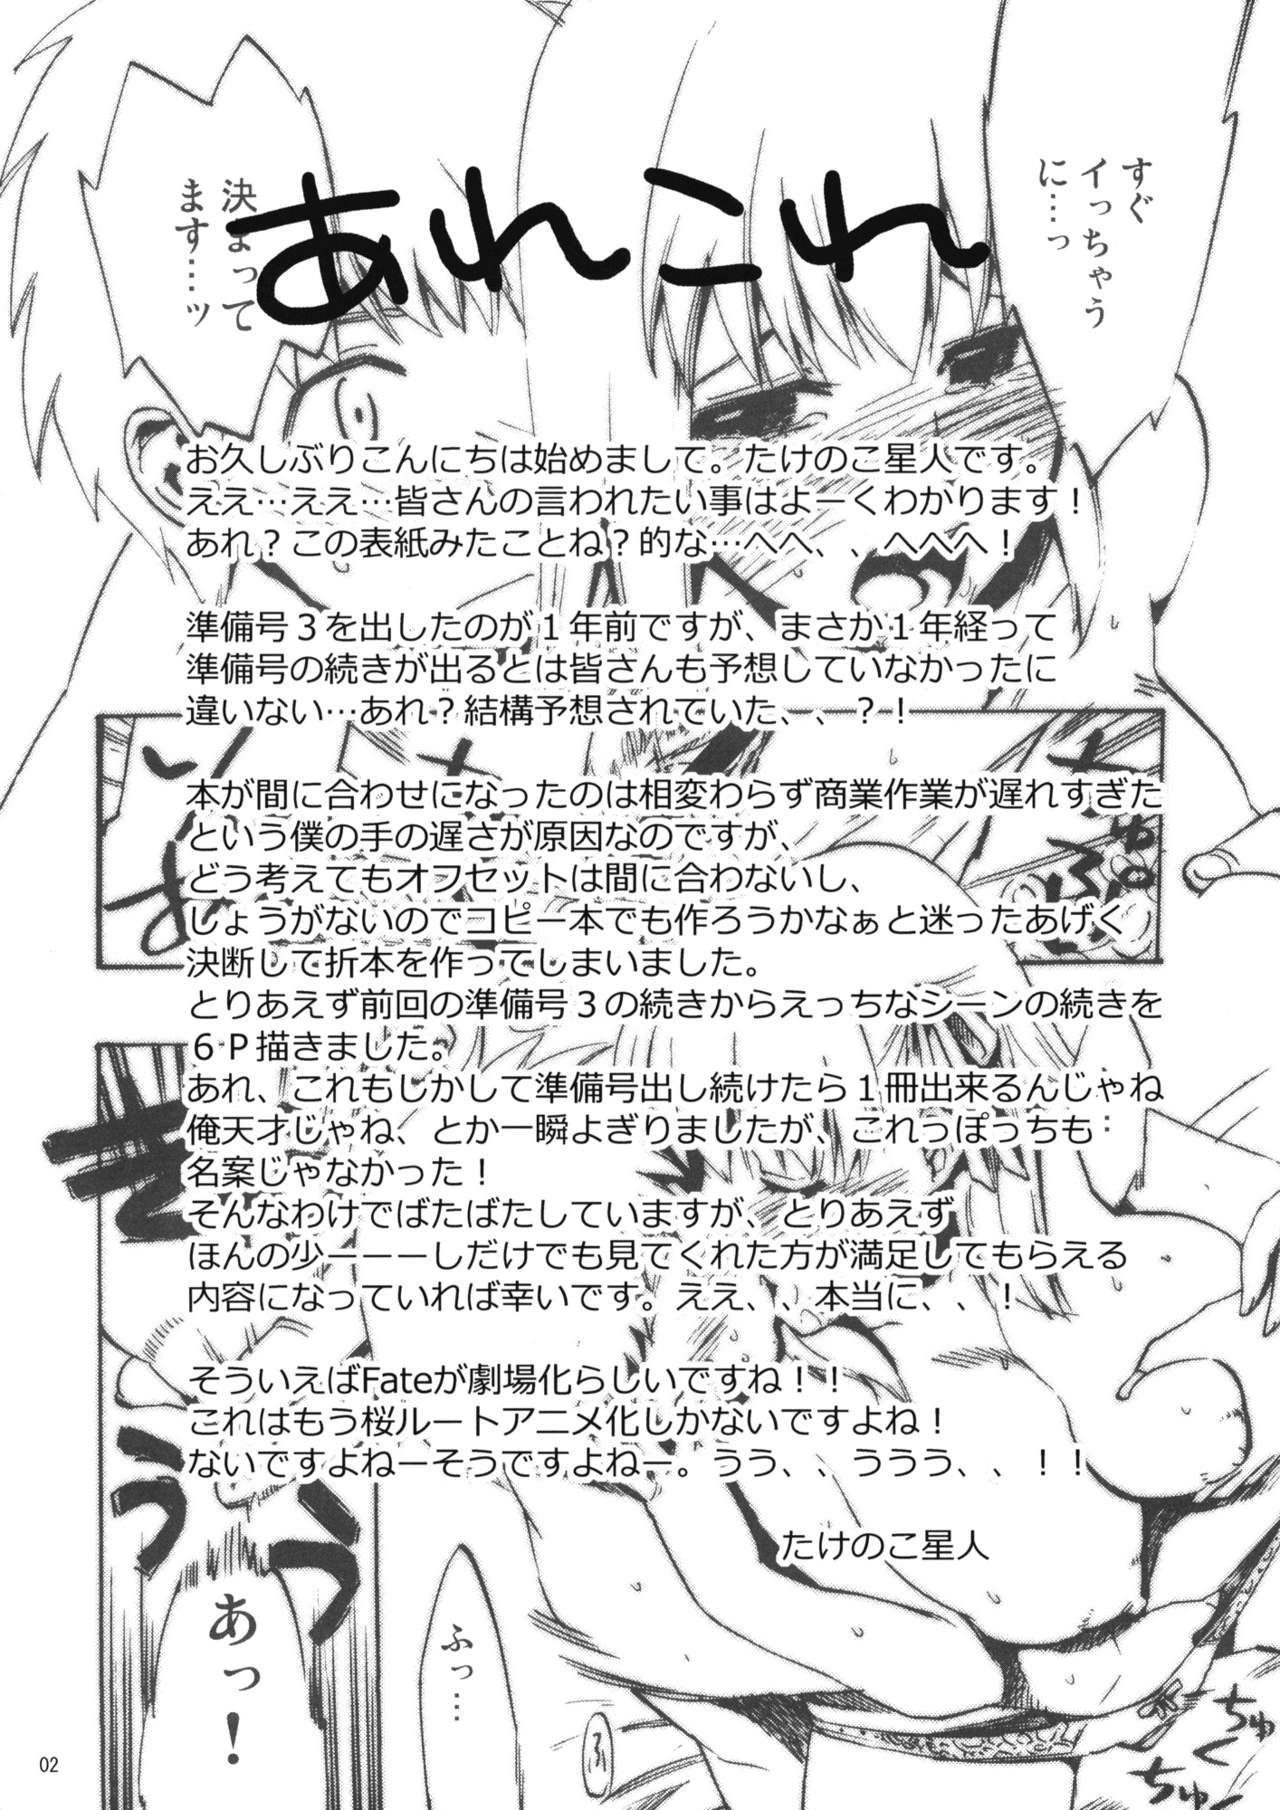 あれこれ
お久しぶりこんにちは始めまして。たけのこ星人です。
ええ…ええ…皆さんの言われたい事はよーくわかります！
あれ？この表紙みたことね？的な…へへ、、へへへ！
準備号３を出したのが１年前ですが、まさか１年経って
準備号の続きが出るとは皆さんも予想していなかったに
違いない…あれ？結構予想されていた、、？！
本が間に合わせになったのは相変わらず商業作業が遅れすぎた
という僕の手の遅さが原因なのですが、
どう考えてもオフセットは間に合わないし、
しょうがないのでコピー本でも作ろうかなぁと迷ったあげく
決断して折本を作ってしまいました。
とりあえず前回の準備号３の続きからえっちなシーンの続きを
６Ｐ描きました。
あれ、これもしかして準備号出し続けたら１冊出来るんじゃね
俺天才じゃね、とか一瞬よぎりましたが、これっぽっちも
名案じゃなかった！
そんなわけでばたばたしていますが、とりあえず
ほんの少ーーーしだけでも見てくれた方が満足してもらえる
内容になっていれば幸いです。ええ、、本当に、、！
そういえばFateが劇場化らしいですね！！
これはもう桜ルートアニメ化しかないですよね！
ないですよねーそうですよねー。うう、、ううう、、！！
たけのこ星人
02